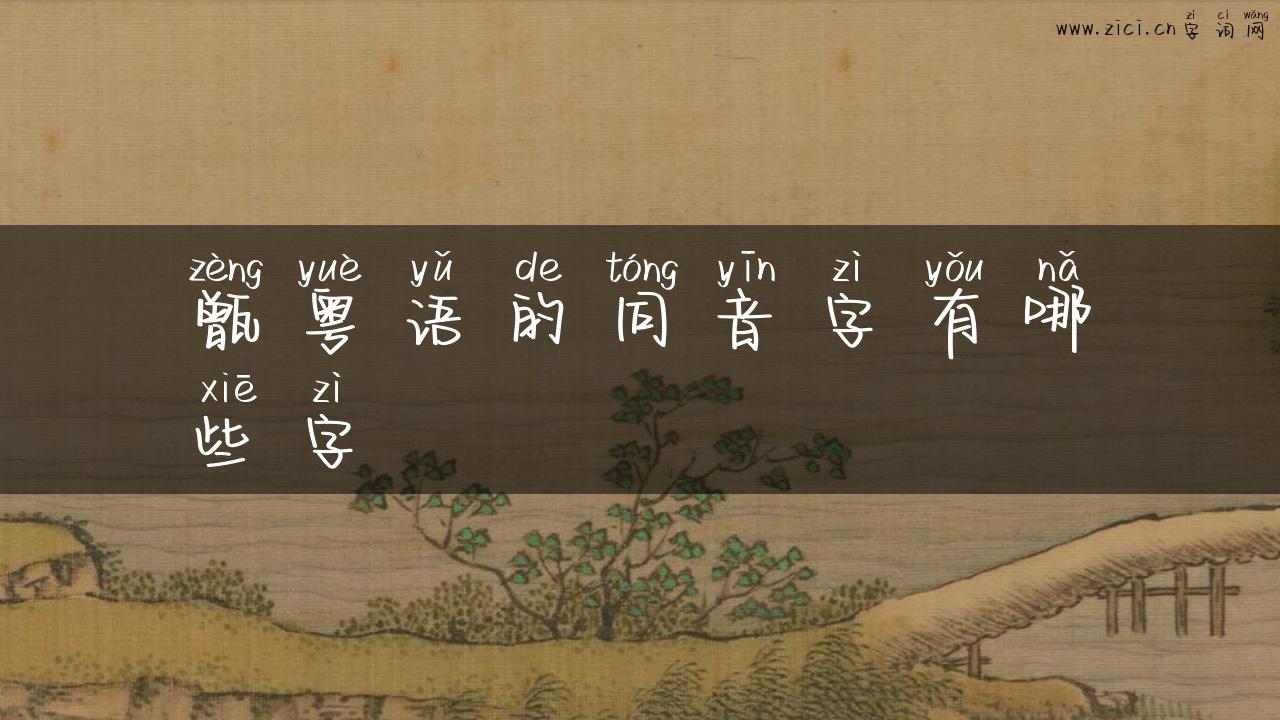 zì cí wǎng
www.zici.cn字词网
zèng yuè yǔ de tóng yīn zì yǒu nǎ
甑粤语的同音字有哪
xiē zì
些字